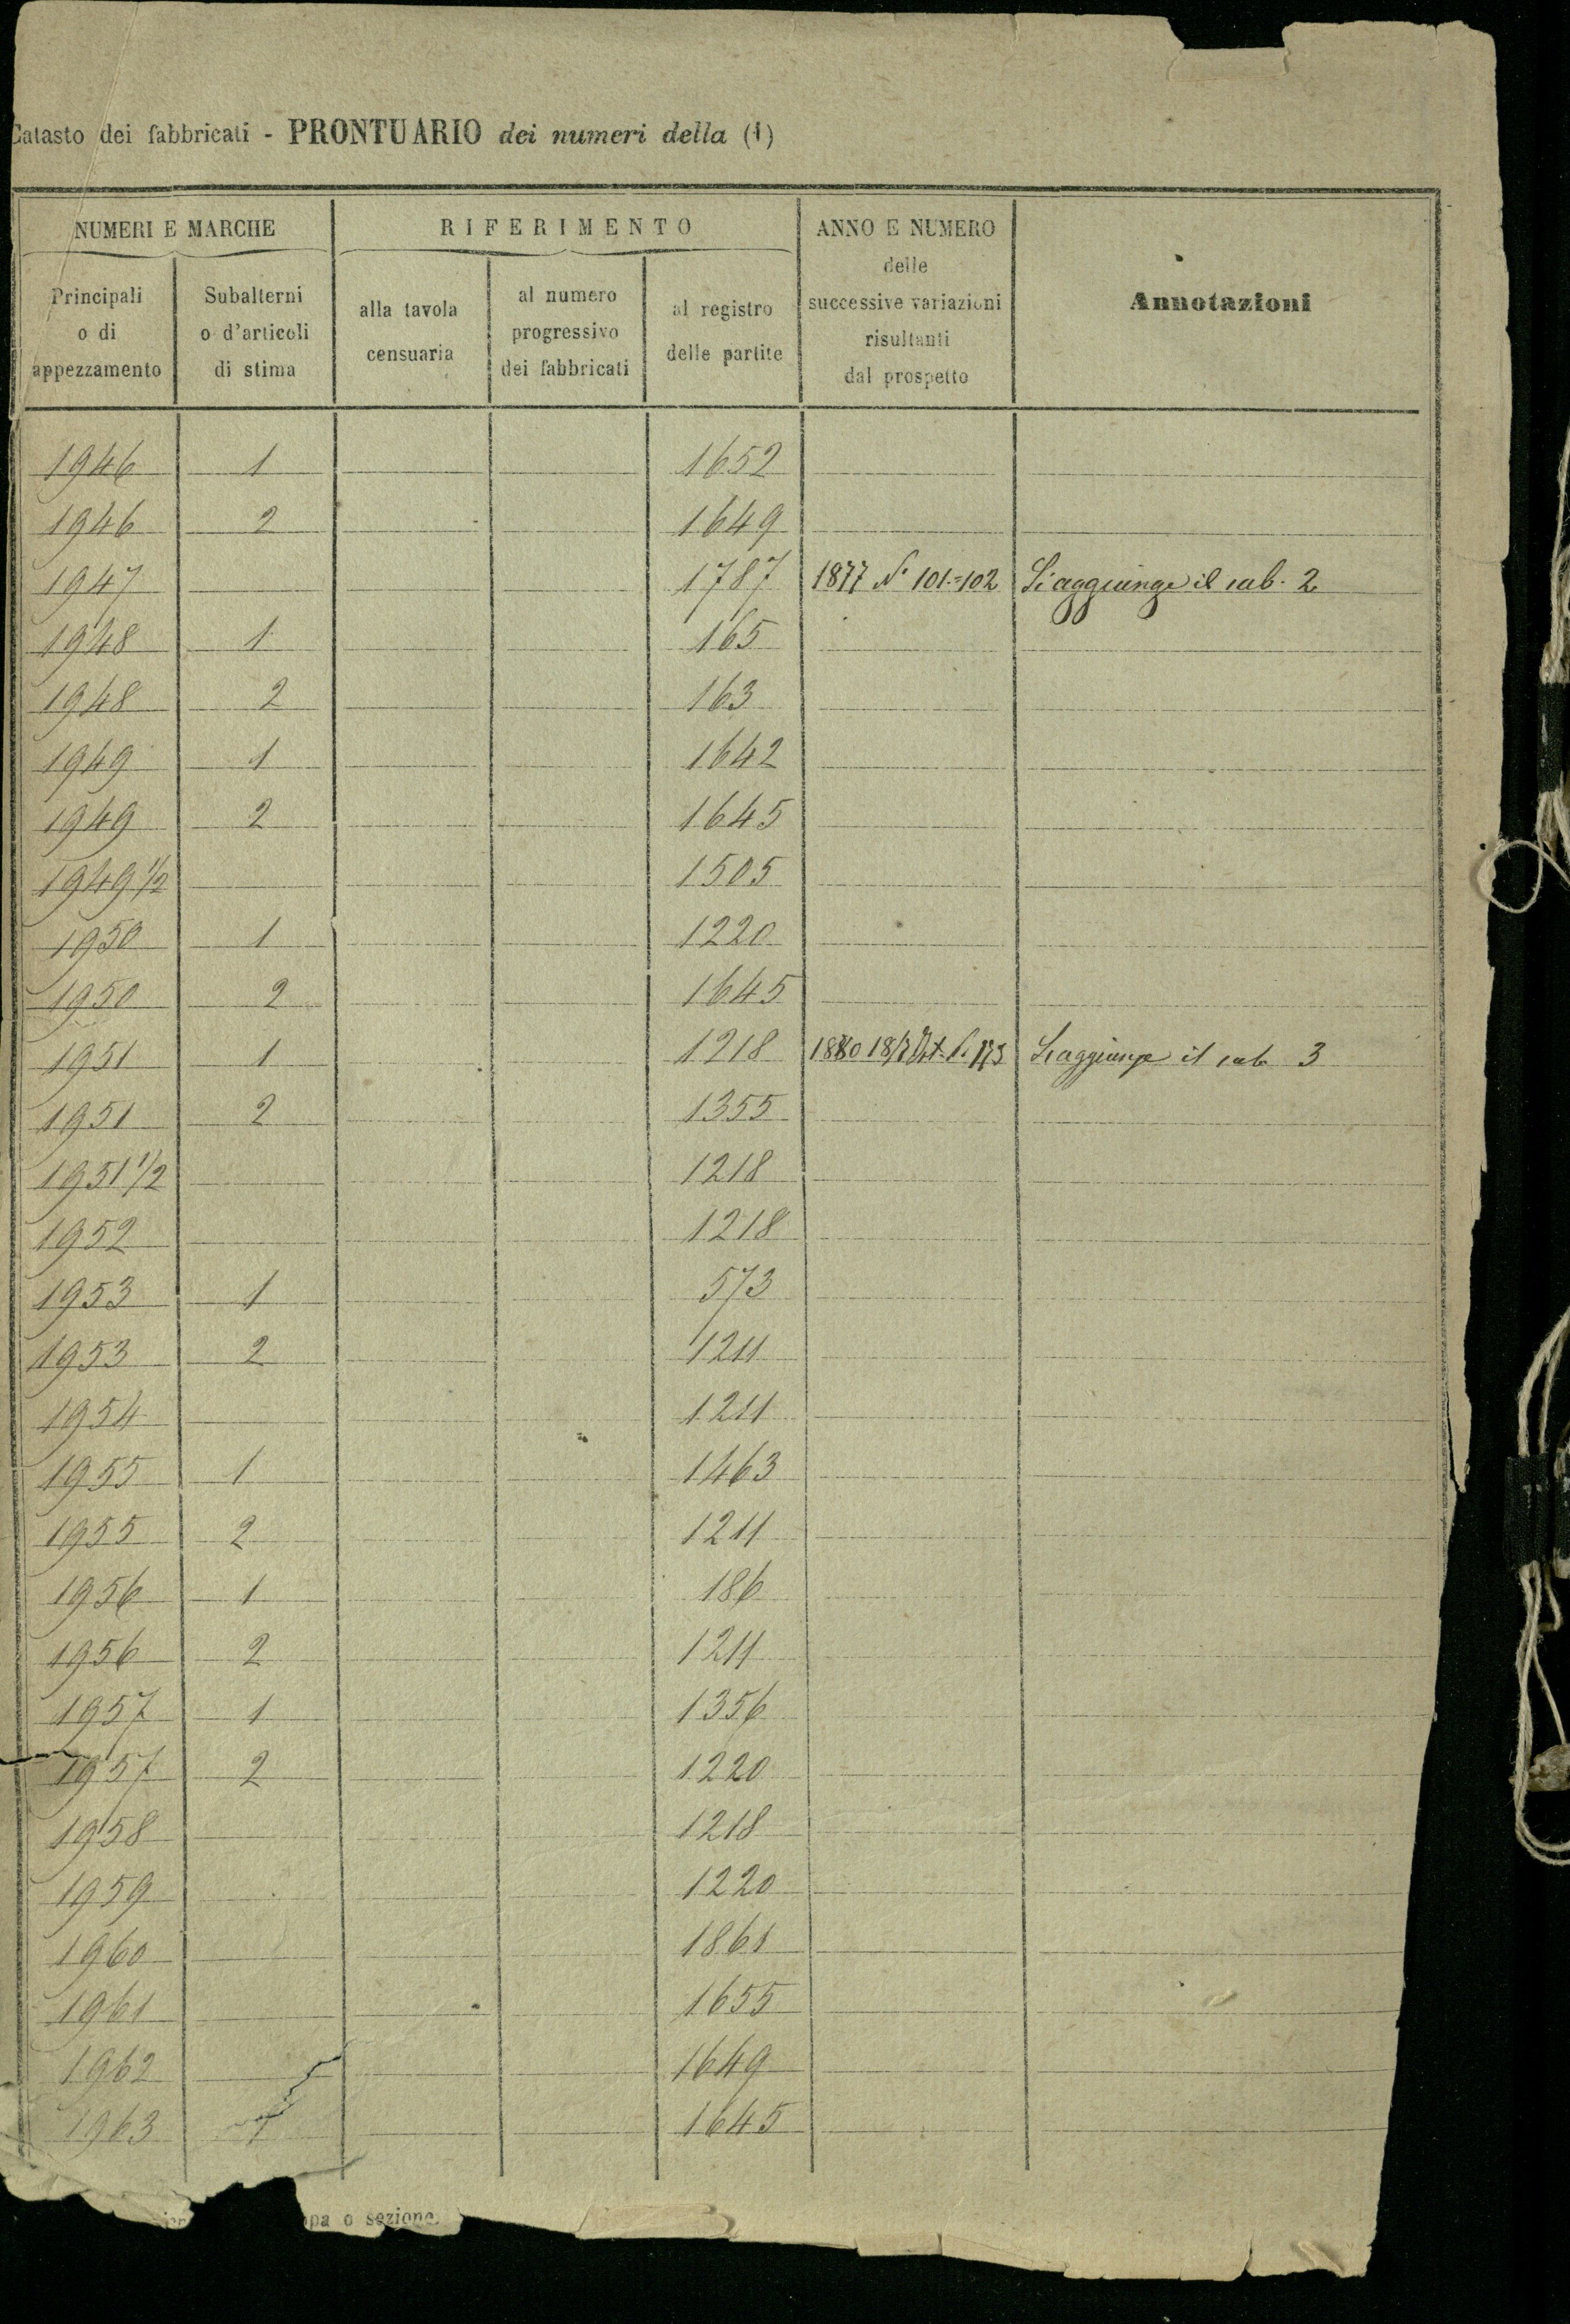 Catasto dei fabbricati - PRONTUARIO dei numeri della (1)
NUMERI E MARCHE
Principali o di appezzamento
Subalterni o d'articoli di stima
RIFERIMENTO
alla tavola censuaria
al numero progressivo dei fabbricati
al registro delle partite
ANNO E NUMERO delle successive variazioni risultanti dal prospetto
Annotazioni
1946 1 1652
1946 2 1649
1947 1787 1877 N. 101.=102 Si aggiunge il sub. 2
1948 1 165
1948 2 163
1949 1 1642
1949 2 1645
1949 1/2 1505
1950 1 1220
1950 2 1645
1951 1 1218 Si aggiunge il sub 3
1951 2 1355
1951 1/2 1218
1952 1218
1953 1 573
1953 2 1211
1954 1211
1955 1 1463
1955 2 1211
1956 1 186
1956 2 1211
1957 1 1356
1957 2 1220
1958 1218
1959 1220
1960 1861
1961 1655
1962 1649
1963 1 1645
o sezione.